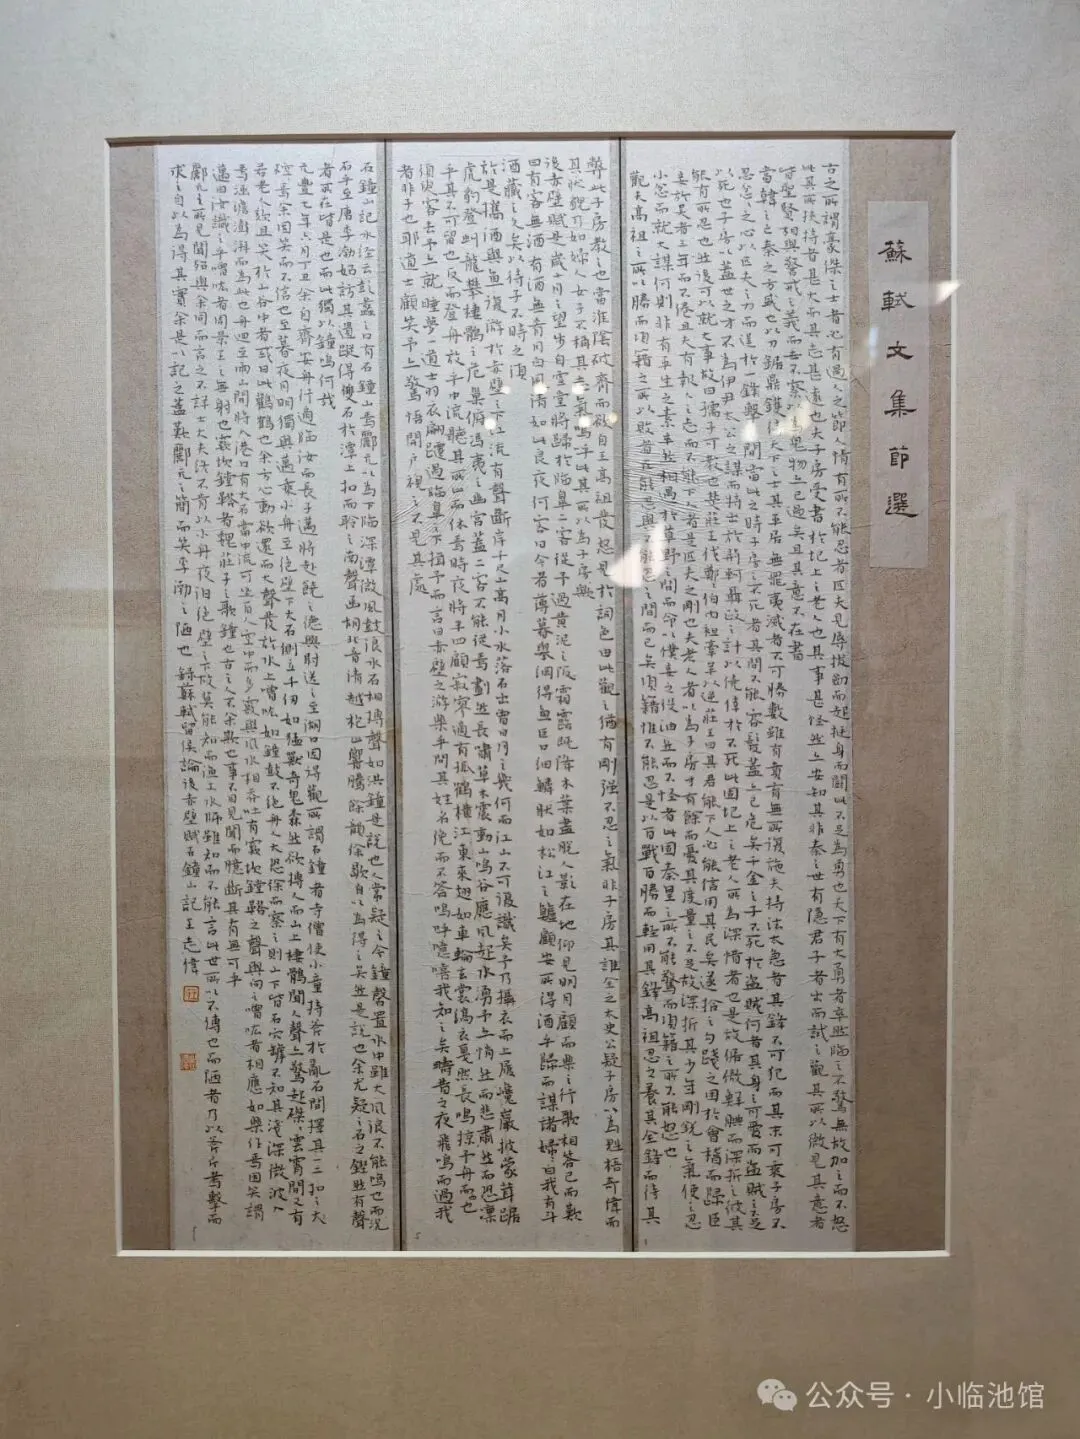 蘇軾文集節選
古之所謂豪傑之士者必有過人之節人情有所不能忍者匹夫見辱拔劍而起挺身而鬪此不足為勇也天下有大勇者卒然臨之而不驚無故加之而不怒
此其所扶持者甚大而其志甚遠也夫子房受書於圯上之老人也其事甚怪然亦安知其非秦之世有隱君子者出而試之觀其所以微見其意者
皆聖賢相與警戒之義而世不察以為鬼物亦已過矣且其意不在書
當韓之亡秦之方盛也以刀鋸鼎鑊待天下之士其平居無罪夷滅者不可勝數雖有賁育無所復施夫持法太急者其鋒不可犯而其末可乘子房不
忍忿忿之心以匹夫之力而逞於一擊之間當此之時子房之不死者其間不能容髮蓋亦已危矣千金之子不死於盜賊何者其身之可愛而盜賊之不足
以死也子房以蓋世之才不為伊尹太公之謀而特出於荊軻聶政之計以僥倖於不死此固圯上之老人所為深惜者也是故倨傲鮮腆而深折之彼其
能有所忍也然後可以就大事故曰孺子可教也楚莊王伐鄭鄭伯肉袒牽羊以逆莊王曰其君能下人必能信用其民矣遂捨之勾踐之困於會稽而歸臣
妾於吳者三年而不倦且夫有報人之志而不能下人者是匹夫之剛也夫老人者以為子房才有餘而憂其度量之不足故深折其少年剛銳之氣使之忍
小忿而就大謀何則非有平生之素卒然相遇於草野之間而命以僕妾之役油然而不怪者此固秦皇之所不能驚而項籍之所不能怒也
觀夫高祖之所以勝而項籍之所以敗者在能忍與不能忍之間而已矣項籍惟不能忍是以百戰百勝而輕用其鋒高祖忍之養其全鋒而待其
弊此子房教之也當淮陰破齊而欲自王高祖發怒見於詞色由此觀之猶有剛强不忍之氣非子房其誰全之太史公疑子房以為魁梧奇偉而
其狀貌乃如婦人女子不稱其志氣嗚呼此其所以為子房歟
後赤壁賦是歲十月之望步自雪堂將歸於臨皋二客從予過黃泥之阪霜露既降木葉盡脫人影在地仰見明月顧而樂之行歌相答已而歎
曰有客無酒有酒無肴月白風清如此良夜何客曰今者薄暮舉網得魚巨口細鱗狀如松江之鱸顧安所得酒乎歸而謀諸婦婦曰我有斗
酒藏之久矣以待子不時之須
於是攜酒與魚復游於赤壁之下江流有聲斷岸千尺山高月小水落石出曾日月之幾何而江山不可復識矣予乃攝衣而上履巉巖披蒙茸踞
虎豹登虬龍攀棲鶻之危巢俯馮夷之幽宮蓋二客不能從焉劃然長嘯草木震動山鳴谷應風起水湧予亦悄然而悲肅然而恐凜
乎其不可留也反而登舟放乎中流聽其所止而休焉時夜將半四顧寂寥適有孤鶴橫江東來翅如車輪玄裳縞衣戛然長鳴掠予舟而西也
須臾客去予亦就睡夢一道士羽衣翩躚過臨皋之下揖予而言曰赤壁之游樂乎問其姓名俛而不答嗚呼噫嘻我知之矣疇昔之夜飛鳴而過我
者非子也耶道士顧笑予亦驚悟開戶視之不見其處
石鐘山記水經云彭蠡之口有石鐘山焉酈元以為下臨深潭微風鼓浪水石相搏聲如洪鐘是說也人常疑之今以鐘磬置水中雖大風浪不能鳴也而況
石乎至唐李渤始訪其遺蹤得雙石於潭上扣而聆之南聲函胡北音清越枹止響騰餘韻徐歇自以為得之矣然是說也余尤疑之石之鏗然有聲
者所在皆是也而此獨以鐘鳴何哉
元豐七年六月丁丑余自齊安舟行適臨汝而長子邁將赴饒之德興尉送之至湖口因得觀所謂石鐘者寺僧使小童持斧於亂石間擇其一二扣之大
硿焉余固笑而不信也至暮夜月明獨與邁乘小舟至絕壁下大石側立千仞如猛獸奇鬼森然欲搏人而山上棲鶻聞人聲亦驚起磔磔雲霄間又有
若老人欬且笑於山谷中者或曰此鸛鶴也余方心動欲還而大聲發於水上噌吰如鐘鼓不絕舟人大恐徐而察之則山下皆石穴罅不知其淺深微波入
焉涵澹澎湃而為此也舟迴至兩山間將入港口有大石當中流可坐百人空中而多竅與風水相吞吐有窾坎鏜鞳之聲與向之噌吰者相應如樂作焉因笑謂
邁曰汝識之乎噌吰者周景王之無射也窾坎鏜鞳者魏莊子之歌鐘也古之人不余欺也事不目見耳聞而臆斷其有無可乎
酈元之所見聞殆與余同而言之不詳士大夫終不肯以小舟夜泊絕壁之下故莫能知而漁工水師雖知而不能言此世所以不傳也而陋者乃以斧斤考擊而
求之自以為得其實余是以記之蓋歎酈元之簡而笑李渤之陋也 錄蘇軾留侯論後赤壁賦石鐘山記王志偉
公众号·小临池馆